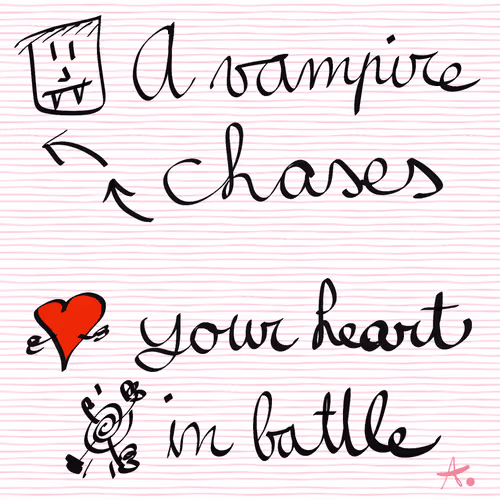 A vampire
chases
your heart
in battle
A.